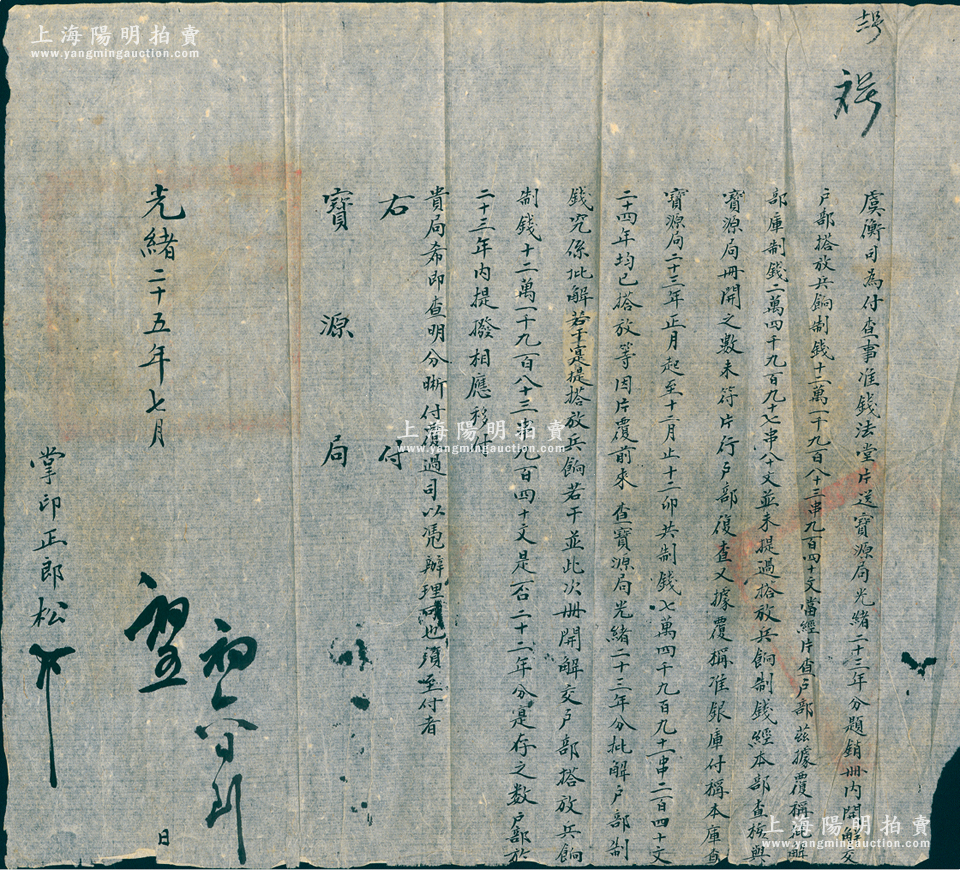 虞衡司為付查事准錢法堂片送寶源局光緒二十三年分題銷冊內開解交
戶部搭放兵餉制錢十二萬一千九百八十三串九百四十文當經片查戶部茲據覆稱批解
部庫制錢二萬四千九百九十七串八十文並未提過搭放兵餉制錢經本部查核與
寶源局冊開之數未符片行戶部復查又據覆稱准銀庫付稱本庫查
寶源局二十三年正月起至十二月止十二卯共制錢七萬四千九百九十一串二百四十文
二十四年均已搭放等因片覆前來查寶源局光緒二十三年分批解戶部制
錢究係批解若干寔提搭放兵餉若干並此次冊開解交戶部搭放兵餉
制錢十二萬一千九百八十三串九百四十文是否二十二年分寔存之數戶部於
二十三年內提撥相應移付
貴局希即查明分晰付復過司以憑辦理可也須至付者
右付
寶源局
光緒二十五年七月 日
掌印正郎松
上海陽明拍賣
www.yangmingauction.com
上海陽明拍賣
www.yangmingauction.com
上海陽明拍賣
www.yangmingauction.com
上海陽明拍賣
www.yangmingauction.com